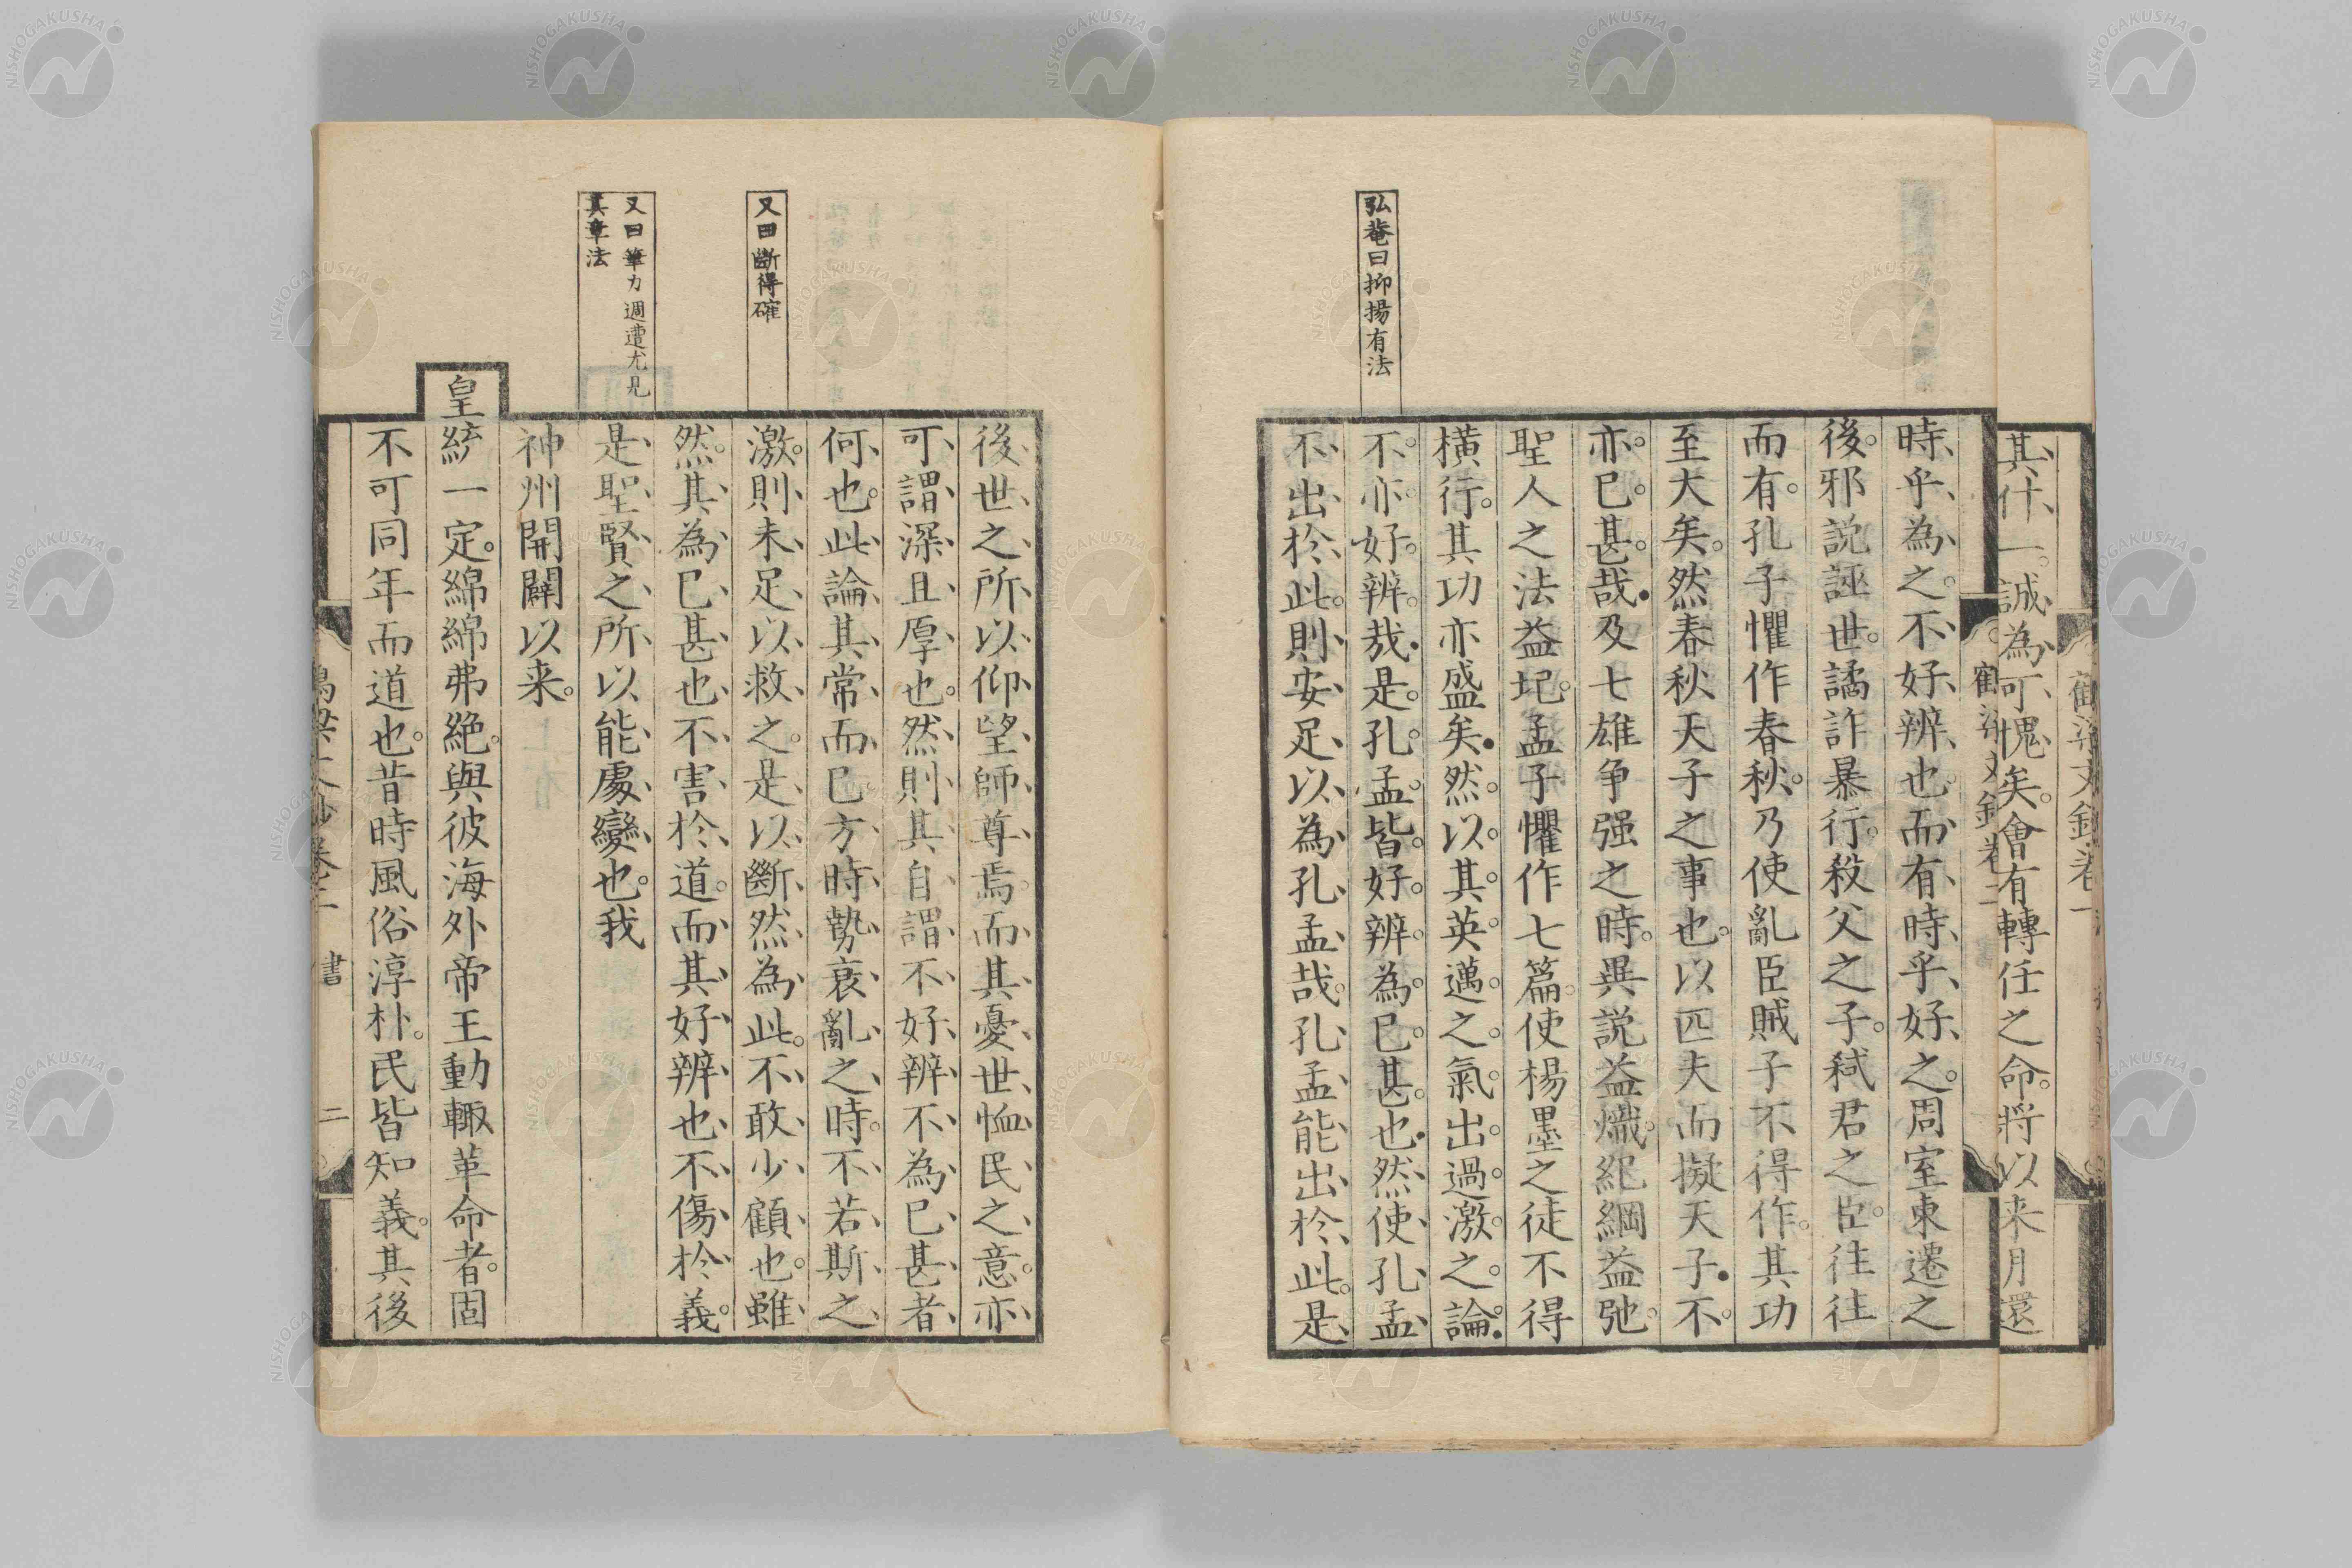 其什一。誠為可愧矣。會有轉任之命。將以来月還
弘菴曰抑揚有法
時乎為之。不好辨也。而有時乎好之。周室東遷之
後。邪説誣世。譎詐暴行。殺父之子。弑君之臣。往往
而有。孔子懼作春秋。乃使亂臣賊子不得作。其功
至大矣。然春秋天子之事也。以匹夫而擬天子。不
亦已甚哉。及七雄争强之時。異説益熾。紀綱益弛。
聖人之法益圮。孟子懼作七篇。使楊墨之徒不得
横行。其功亦盛矣。然以其英邁之氣。出過激之論。
不亦好辨哉。是孔孟皆好辨為已甚也。然使孔孟
不出於此。則安足以為孔孟哉。孔孟能出於此。是
又曰斷得確
又曰筆力週遭尤見
其章法
後世之所以仰望師尊焉。而其憂世恤民之意。亦
可謂深且厚也。然則其自謂不好辨不為已甚者
何也。此論其常而已。方時勢衰亂之時。不若斯之
激。則未足以救之。是以斷然為此。不敢少顧也。雖
然。其為已甚也。不害於道。而其好辨也。不傷於義。
是聖賢之所以能處變也。我
神州開闢以来。
皇統一定。綿綿弗絶。與彼海外帝王動輙革命者。固
不可同年而道也。昔時風俗淳朴。民皆知義。其後
書
二